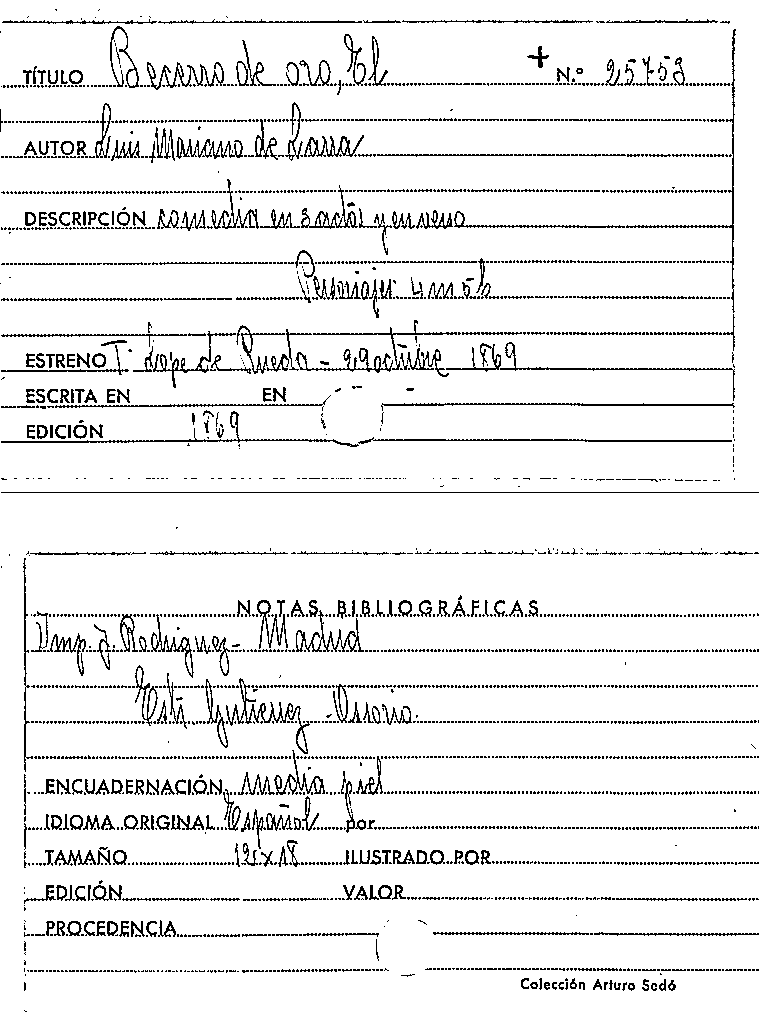 TÍTULO Becerro de oro, El + N.º 25753
AUTOR Luis Mariano de Larra
DESCRIPCIÓN comedia en 3 actos y en verso
Personajes 4 m 5 h
ESTRENO T. Lope de Rueda - 29 octubre 1869
ESCRITA EN EN -
EDICIÓN 1869
NOTAS BIBLIOGRÁFICAS
Imp. J. Rodriguez - Madrid
Gutierrez - Ossorio.
ENCUADERNACIÓN media piel
IDIOMA ORIGINAL Español por
TAMAÑO 12 x 18 ILUSTRADO POR
EDICIÓN VALOR
PROCEDENCIA
Colección Arturo Sedó